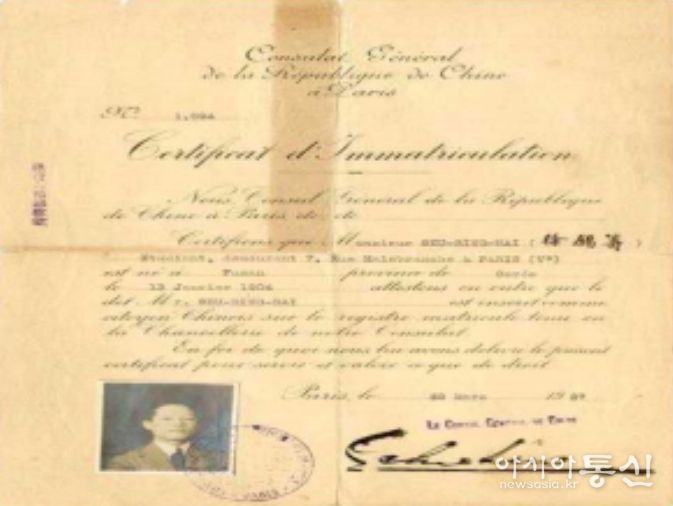 Consulat Général
de la République de Chine
à Paris
Nº
Certificat d'Immatriculation
Nous, Consul Général de la République
de Chine à Paris
Certifions que Monsieur SEU-RING-HAI (徐嶺海)
Etudiant, demeurant 7, Rue Malebranche à PARIS (Vº)
est né à Fusan province de Corée
le 13 Janvier 1904 attestons en outre que le
dit Mr. SEU-RING-HAI est inscrit comme
citoyen Chinois sur le registre matricule tenu en
la Chancellerie de notre Consulat.
En foi de quoi nous lui avons délivré le présent
certificat pour servir et valoir ce que de droit.
Paris, le Mars 19
Le Consul Général de Chine
아시아통신
newsasia.kr